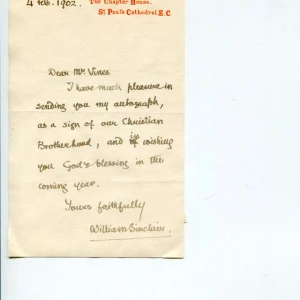 4 Feb. 1902.
The Chapter House.
St Pauls Cathedral. E.C
Dear Mr Vines
I have much pleasure in
sending you my autograph,
as a sign of our Christian
Brotherhood, and wishing
you God's blessing in the
coming year.
Yours faithfully
William Sinclair.